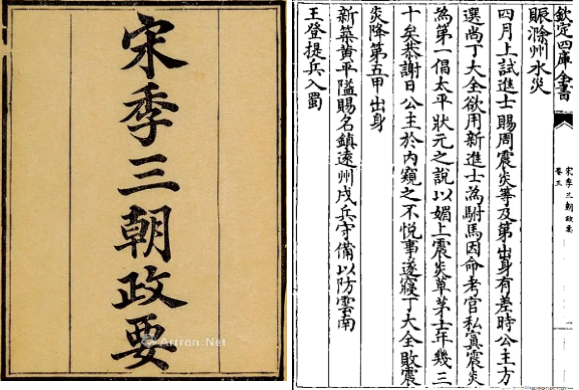 宋季三朝政要
Artron.Net
欽定四庫全書
宋季三朝政要
賑滁州水災
四月上試進士賜周震炎等及第出身有差時公主方
選尚丁大全欲用新進士為駙馬因命考官私寘震炎
為第一倡太平狀元之說以媚上震炎草茅士年幾三
十矣恭謝日公主於內窺之不悅事遂寢丁大全敗震
炎降第五甲出身
新築黃平隘賜名鎮遠州戍兵守備以防雲南
王登提兵入蜀